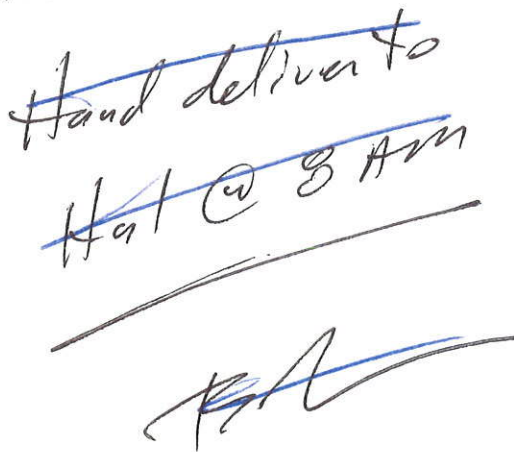 Hand deliver to
Hal @ 8 AM